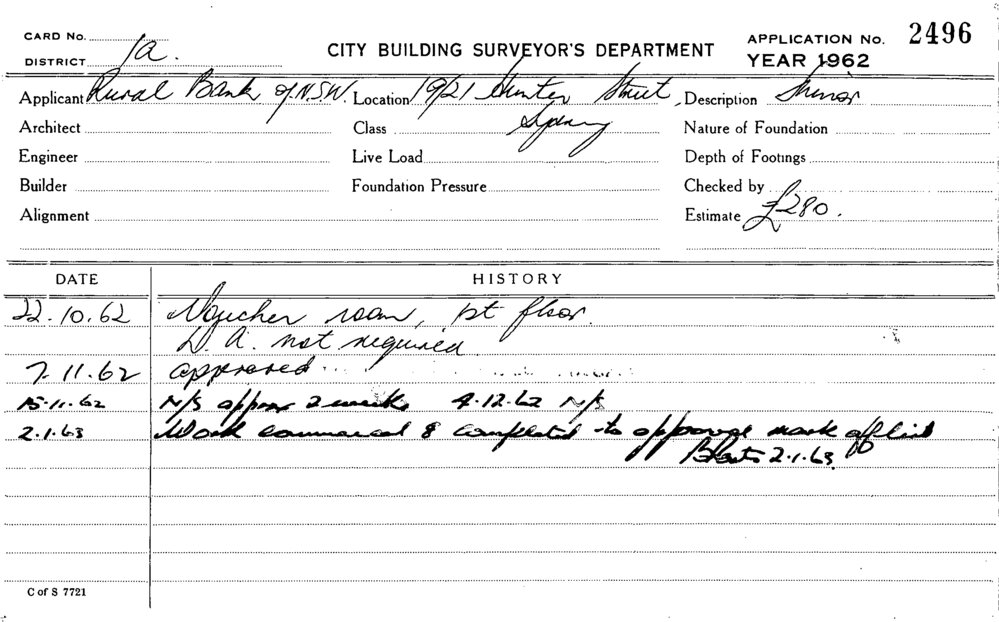 CARD No.
DISTRICT 1a.
CITY BUILDING SURVEYOR'S DEPARTMENT
APPLICATION No. 2496
YEAR 1962
Applicant Rural Bank of N.S.W. Location 19/21 Hunter Street, Description Minor
Architect Class Sydney Nature of Foundation
Engineer Live Load Depth of Footings
Builder Foundation Pressure Checked by
Alignment Estimate £280.
DATE HISTORY
22.10.62 Voucher room, 1st floor.
D.A. not required
7.11.62 approved
15.11.62 N/S approx 2 weeks 4.12.62 N/S
2.1.63 Work commenced & completed to approval mark off list
2.1.63
C of S 7721